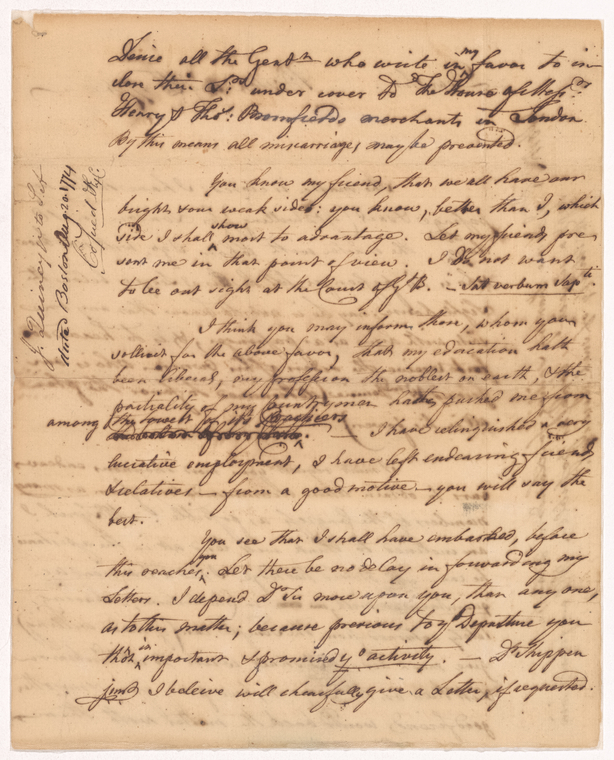 Desire all the Gentn who write in my favor to in-
close their Lrs under cover to The House of Messrs
Henry & Thos: Bromfields merchants in London
By this means all miscarriages may be prevented.
You know my friend, that we all have our
bright & our weak sides: you know, better than I, which
side I shall show most to advantage. Let my friends pre-
sent me in that point of view. I do not want
to be out sight at the Court of Gt B. — Sat verbum sapti.
I think you may inform those, whom you
sollicit for the above favor, that my education hath
been liberal, my profession the noblest on earth, & the
partiality of my Countrymen hath pushed me from
among the
— I have relinquished a very
lucrative employment, I have left endearing friends
& relatives — from a good motive — you will say the
best.
You see that I shall have embarked, before
this reaches you. Let there be no delay in forwarding my
Letters. I depend Dr Sir more upon you, than any one,
as to this matter; because previous to yr Departure you
thot it important & promised yr activity. — Dr Shippen
junr I beleive will chearfully give a Letter, if requested.
J. Quincy
dated Boston Aug 20 1774